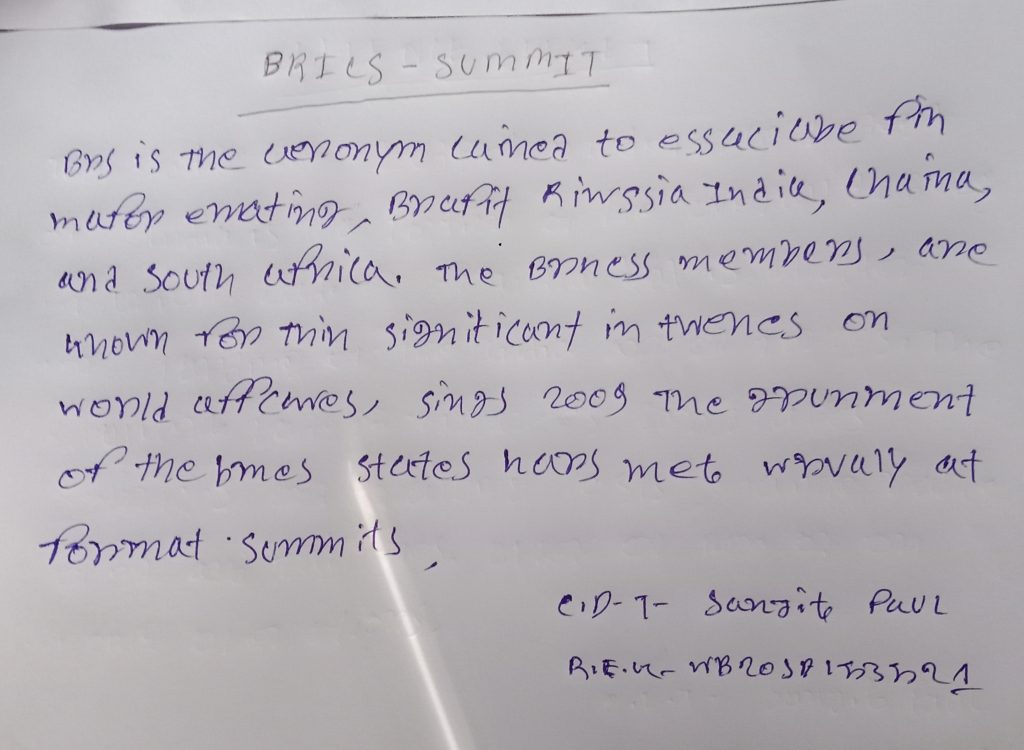 BRICS - SUMMIT
is the acronym coined to essuciabe fin
mafor emating, Brafit Rinssia India, Chaina,
and South Africa. The Brness members, are
known for thin significant in twenes on
world affcares, sings 2009 The grunment
of the brnes states hars met at
Format summits,
C.D-T- Sangita PAUL